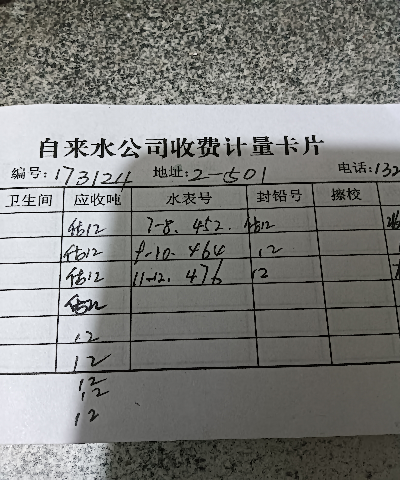 自来水公司收费计量卡片
编号:173124 地址:2-501 电话:132
卫生间 应收吨 水表号 封铅号 擦校
估12 7-8. 452. 估12
估12 9-10. 464 12
估12 11-12. 476 12
估12
12
12
12
12
12